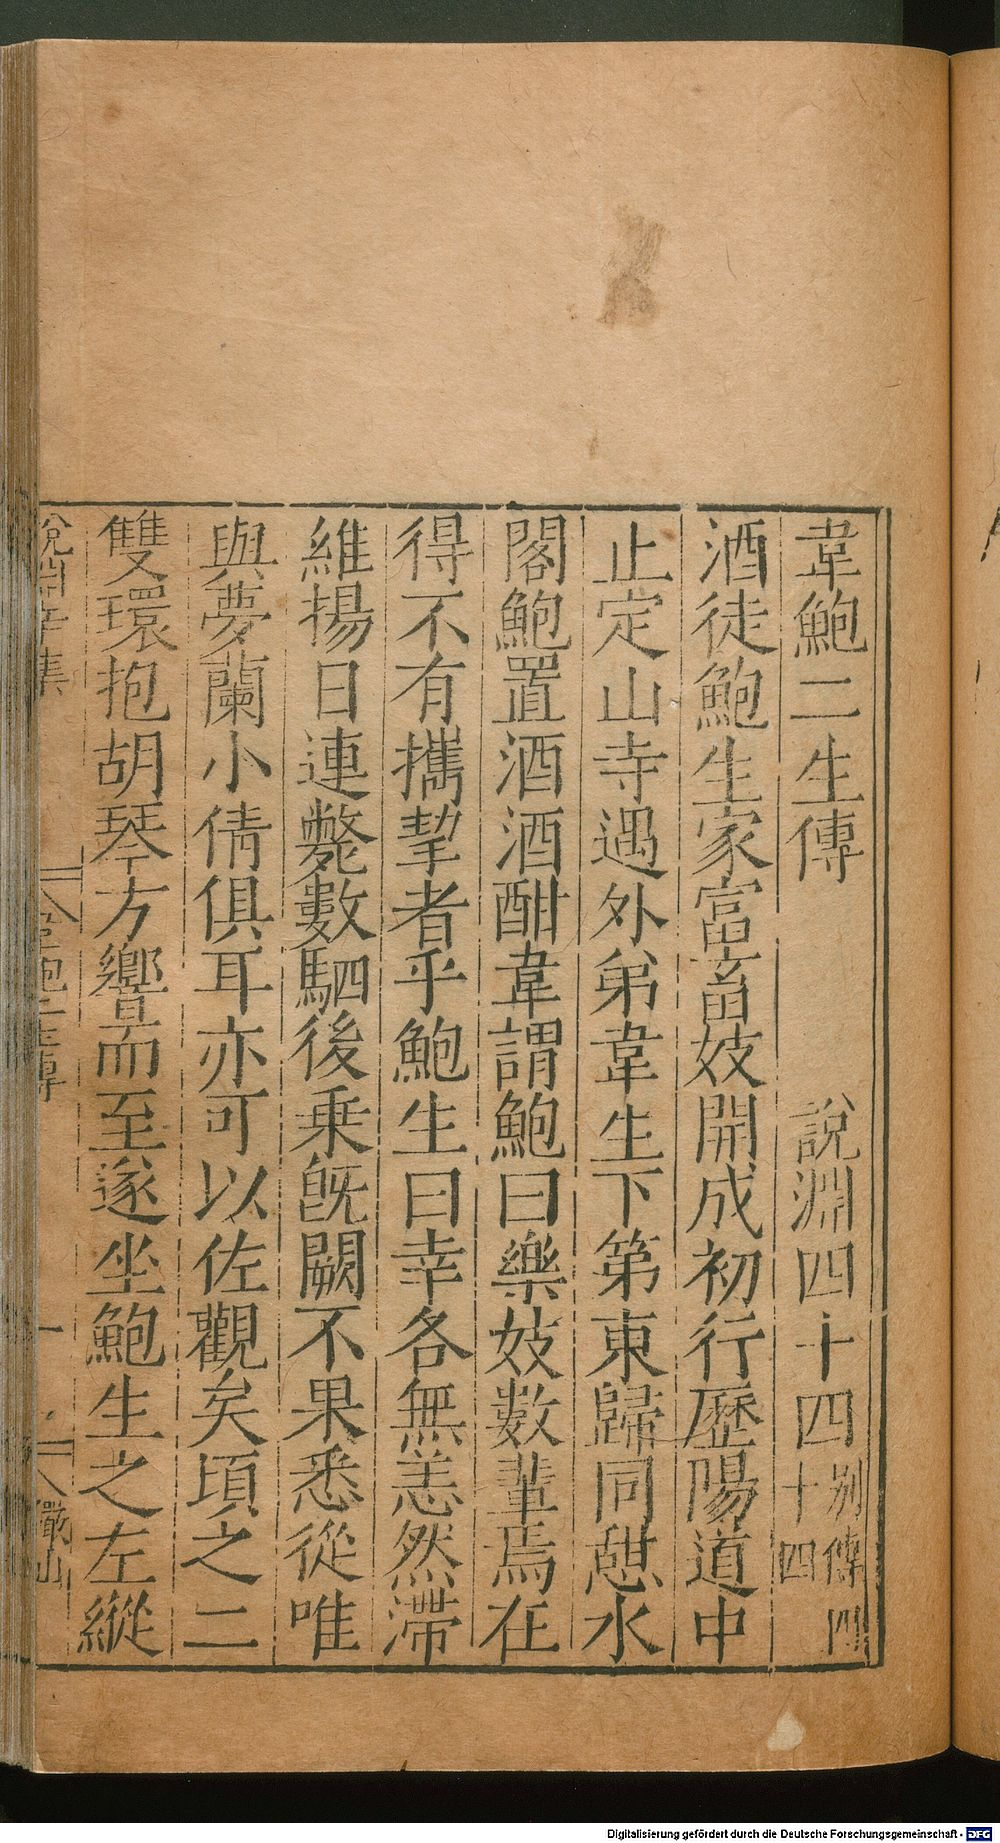 韋鮑二生傳 說淵四十四 別傳四十四
酒徒鮑生家富畜妓開成初行歷陽道中
止定山寺遇外弟韋生下第東歸同憩水
閣鮑置酒酒酣韋謂鮑曰樂妓數輩焉在
得不有攜挈者乎鮑生曰幸各無恙然滯
維揚日連斃數駟後乗旣闕不果悉從唯
與夢蘭小倩俱耳亦可以佐觀矣頃之二
雙環抱胡琴方響而至遂坐鮑生之左縱
說淵辛集 韋鮑二生傳 一 儼山
Digitalisierung gefördert durch die Deutsche Forschungsgemeinschaft - DFG